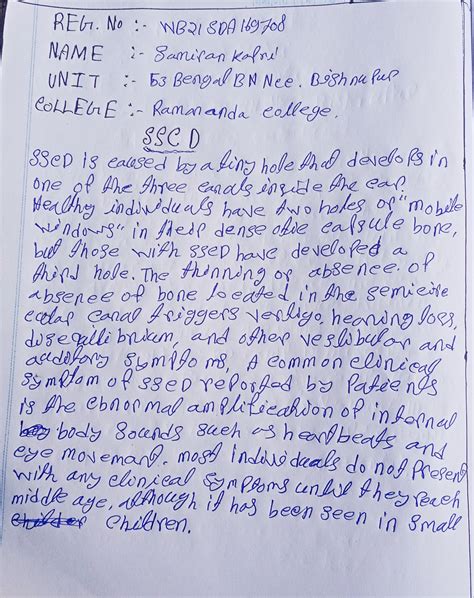 REG. No :- WB21SDA169708
NAME :- Samiran Kalri
UNIT :- 53 Bengal BN Ncc. Bishnupur
COLLEGE :- Ramananda college.
SSCD
SSCD is caused by a tiny hole that develops in
one of the three canals inside the ear.
Healthy individuals have two holes or "mobile
windows" in their dense otic capsule bone,
but those with SSCD have developed a
third hole. The thinning or absence of
absence of bone located in the semicirc
cular canal triggers vertigo, hearing loss,
disequilibrium, and other vestibular and
auditory symptoms, A common clinical
symptom of SSCD reported by Patients
is the ebnormal amplification of internal
body sounds such as heartbeats and
eye movement. most individuals do not present
with any clinical symptoms until they reach
middle age, although it has been seen in small
children.